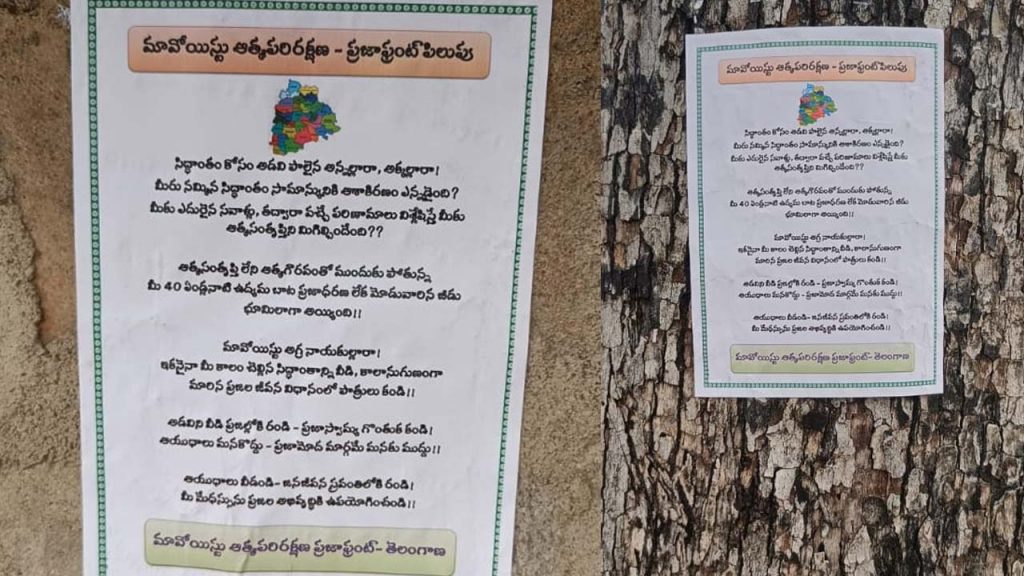 మావోయిస్టు ఆత్మపరిరక్షణ - ప్రజాఫ్రంట్ పిలుపు
సిద్ధాంతం కోసం అడవి పాలైన అన్నల్లారా, అక్కల్లారా!
మీరు నమ్మిన సిద్ధాంతం సామాన్యునికి ఆశాకిరణం ఎన్నడైంది?
మీకు ఎదురైన సవాళ్లు, తద్వారా వచ్చే పరిణామాలు విశ్లేషిస్తే మీకు
ఆత్మసంతృప్తిని మిగిల్చిందేంది??
ఆత్మసంతృప్తి లేని ఆత్మగౌరవంతో ముందుకు పోతున్న
మీ 40 ఏండ్లనాటి ఉద్యమ బాట ప్రజాధరణ లేక మోడువారిన బీడు
భూమిలాగా అయ్యింది!!
మావోయిస్టు అగ్ర నాయకుల్లారా!
ఇకనైనా మీ కాలం చెల్లిన సిద్ధాంతాన్ని వీడి, కాలానుగుణంగా
మారిన ప్రజల జీవన విధానంలో పాత్రులు కండి!!
అడవిని వీడి ప్రజల్లోకి రండి - ప్రజాస్వామ్య గొంతుక కండి!
ఆయుధాలు మనకొద్దు - ప్రజామోద మార్గమే మనకు ముద్దు!!
ఆయుధాలు వీడండి- జనజీవన స్రవంతిలోకి రండి!
మీ మేధస్సును ప్రజల అభివృద్ధికి ఉపయోగించండి!!
మావోయిస్టు ఆత్మపరిరక్షణ ప్రజాఫ్రంట్- తెలంగాణ
మావోయిస్టు ఆత్మపరిరక్షణ - ప్రజాఫ్రంట్ పిలుపు
సిద్ధాంతం కోసం అడవి పాలైన అన్నల్లారా, అక్కల్లారా!
మీరు నమ్మిన సిద్ధాంతం సామాన్యునికి ఆశాకిరణం ఎన్నడైంది?
మీకు ఎదురైన సవాళ్లు, తద్వారా వచ్చే పరిణామాలు విశ్లేషిస్తే మీకు
ఆత్మసంతృప్తిని మిగిల్చిందేంది??
ఆత్మసంతృప్తి లేని ఆత్మగౌరవంతో ముందుకు పోతున్న
మీ 40 ఏండ్లనాటి ఉద్యమ బాట ప్రజాధరణ లేక మోడువారిన బీడు
భూమిలాగా అయ్యింది!!
మావోయిస్టు అగ్ర నాయకుల్లారా!
ఇకనైనా మీ కాలం చెల్లిన సిద్ధాంతాన్ని వీడి, కాలానుగుణంగా
మారిన ప్రజల జీవన విధానంలో పాత్రులు కండి!!
అడవిని వీడి ప్రజల్లోకి రండి - ప్రజాస్వామ్య గొంతుక కండి!
ఆయుధాలు మనకొద్దు - ప్రజామోద మార్గమే మనకు ముద్దు!!
ఆయుధాలు వీడండి- జనజీవన స్రవంతిలోకి రండి!
మీ మేధస్సును ప్రజల అభివృద్ధికి ఉపయోగించండి!!
మావోయిస్టు ఆత్మపరిరక్షణ ప్రజాఫ్రంట్- తెలంగాణ